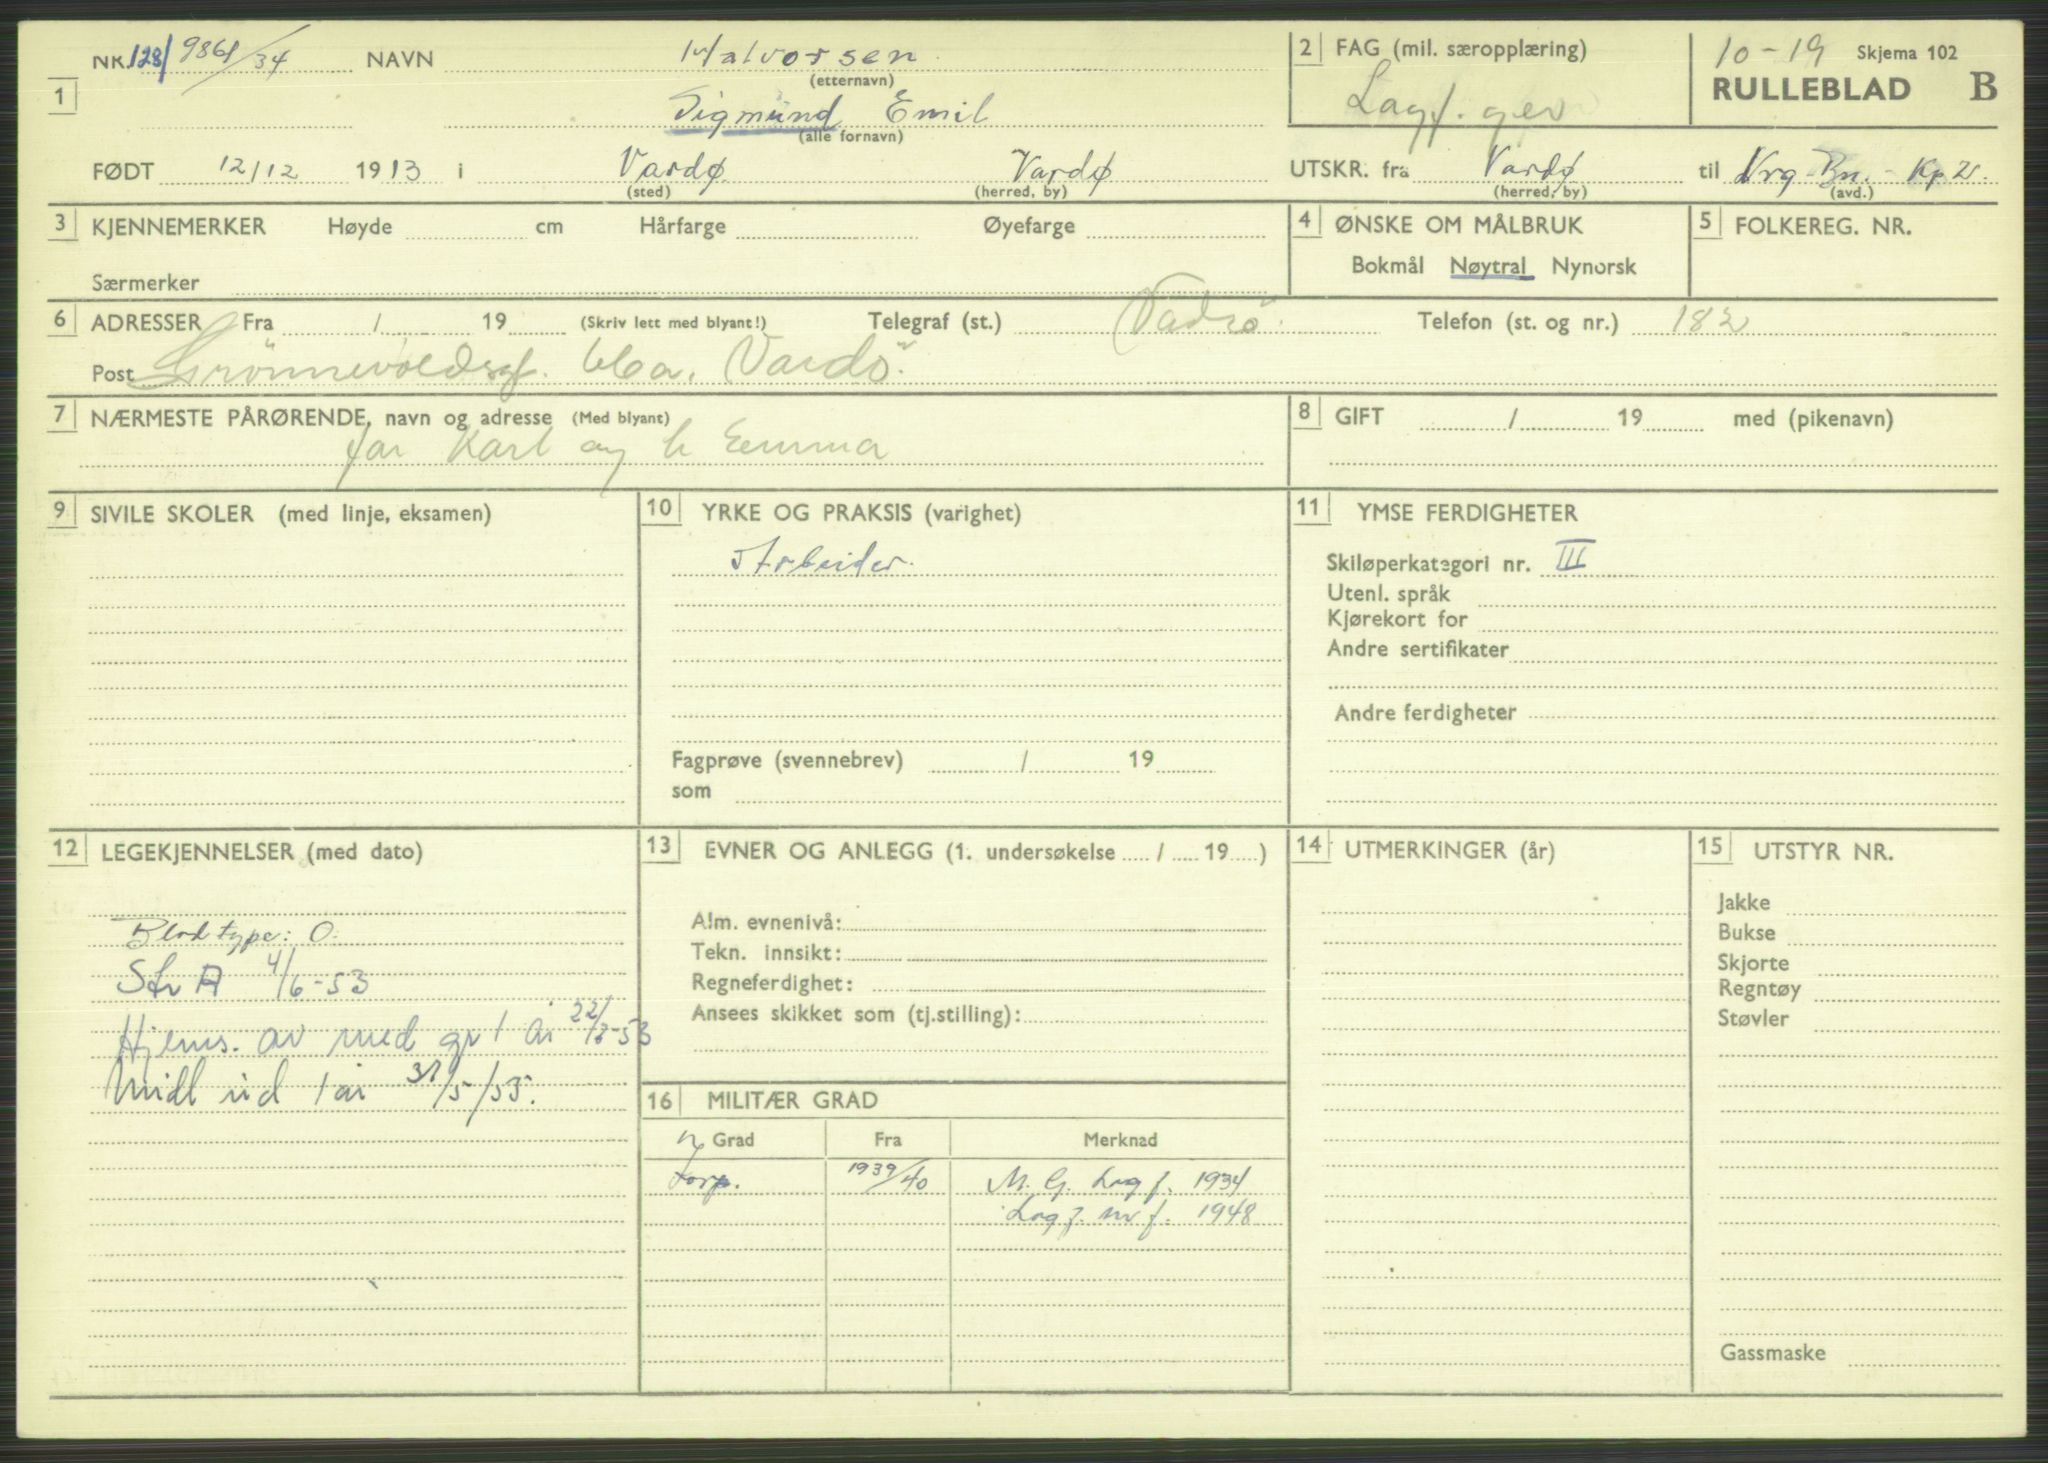 NR. 128/9861/34 NAVN Halvorsen 10-19 Skjema 102
(etternavn)
1 Sigmund Emil
(alle fornavn)
2 FAG (mil. særopplæring)
Lagf. gev
RULLEBLAD B
FØDT 12/12 1913 i Vardø Vardø UTSKR. fra Vardø til Vrg-Bn.-Kp
(sted) (herred, by) (herred, by) (avd.)
3 KJENNEMERKER Høyde cm Hårfarge Øyefarge
Særmerker
4 ØNSKE OM MÅLBRUK
Bokmål Nøytral Nynorsk
5 FOLKEREG. NR.
6 ADRESSER Fra / 19 (Skriv lett med blyant!) Telegraf (st.) Vadsö. Telefon (st. og nr.) 182
Post Grönnevoldsgt. Vardö.
7 NÆRMESTE PÅRØRENDE, navn og adresse (Med blyant)
far Karl og h Emma
8 GIFT / 19 med (pikenavn)
9 SIVILE SKOLER (med linje, eksamen)
10 YRKE OG PRAKSIS (varighet)
Arbeider.
Fagprøve (svennebrev) / 19
som
11 YMSE FERDIGHETER
Skiløperkategori nr. III
Utenl. språk
Kjørekort for
Andre sertifikater
Andre ferdigheter
12 LEGEKJENNELSER (med dato)
Blodtype: O.
Str A 4/6-53
Hjems. av med gr 1 år 22/6-53
Midl ud 1 år 31/5/55.
13 EVNER OG ANLEGG (1. undersøkelse / 19 )
Alm. evnenivå:
Tekn. innsikt:
Regneferdighet:
Ansees skikket som (tj.stilling):
14 UTMERKINGER (år)
15 UTSTYR NR.
Jakke
Bukse
Skjorte
Regntøy
Støvler
Gassmaske
16 MILITÆR GRAD
Grad Fra Merknad
Korp. 1939/40 M.G. Lagf. 1934
Lagf. 1948